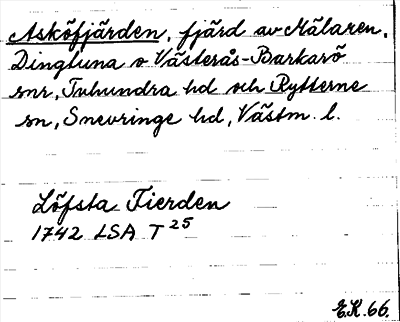 Asköfjärden, fjärd av Mälaren,
Dingtuna o Västerås-Barkarö
snr, Tuhundra hd och Rytterne
sn, Snevringe hd, Västm. l.
Löfsta Fierden
1742 LSA T 25
E.K. 66.